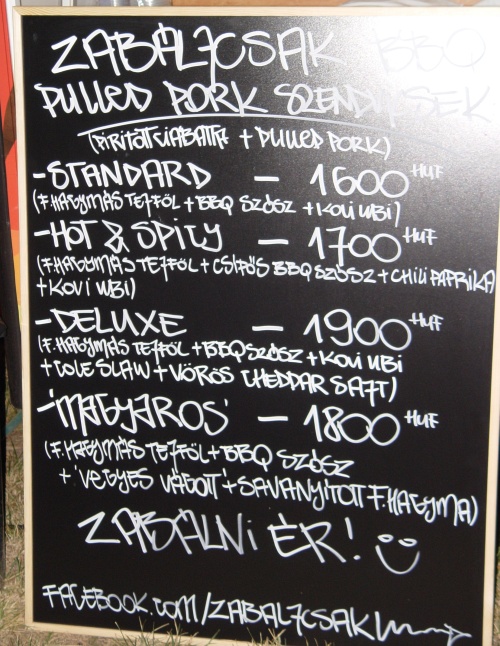 ZABÁLJCSAK BBQ
PULLED PORK SZENDVICSEK
(PIRÍTOTT CIABATTA + PULLED PORK)
-STANDARD - 1600 HUF
(F.HAGYMÁS TEJFÖL + BBQ SZÓSZ + KOVI UBI)
-HOT & SPICY - 1700 HUF
(F.HAGYMÁS TEJFÖL + CSÍPŐS BBQ SZÓSZ + CHILI PAPRIKA
+ KOVI UBI)
-DELUXE - 1900 HUF
(F.HAGYMÁS TEJFÖL + BBQ SZÓSZ + KOVI UBI
+ COLESLAW + VÖRÖS CHEDDAR SAJT)
-'MAGYAROS' - 1800 HUF
(F.HAGYMÁS TEJFÖL + BBQ SZÓSZ
+ 'VEGYES VÁGOTT' + SAVANYÍTOTT F.HAGYMA)
ZABÁLNI ÉR!
FACEBOOK.COM/ZABALJCSAK